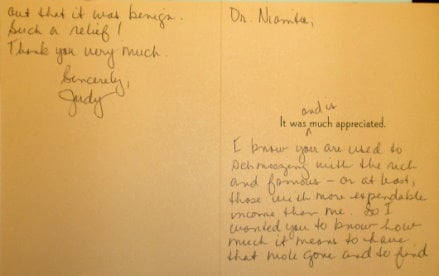 Dr. Niamtu,
and is
It was ^ much appreciated.
I know you are used to
schmoozing with the rich
and famous – or at least,
those with more expendable
income than me. So I
wanted you to know how
much it means to have
that mole gone and to find
out that it was benign.
Such a relief!
Thank you very much.
Sincerely,
Judy